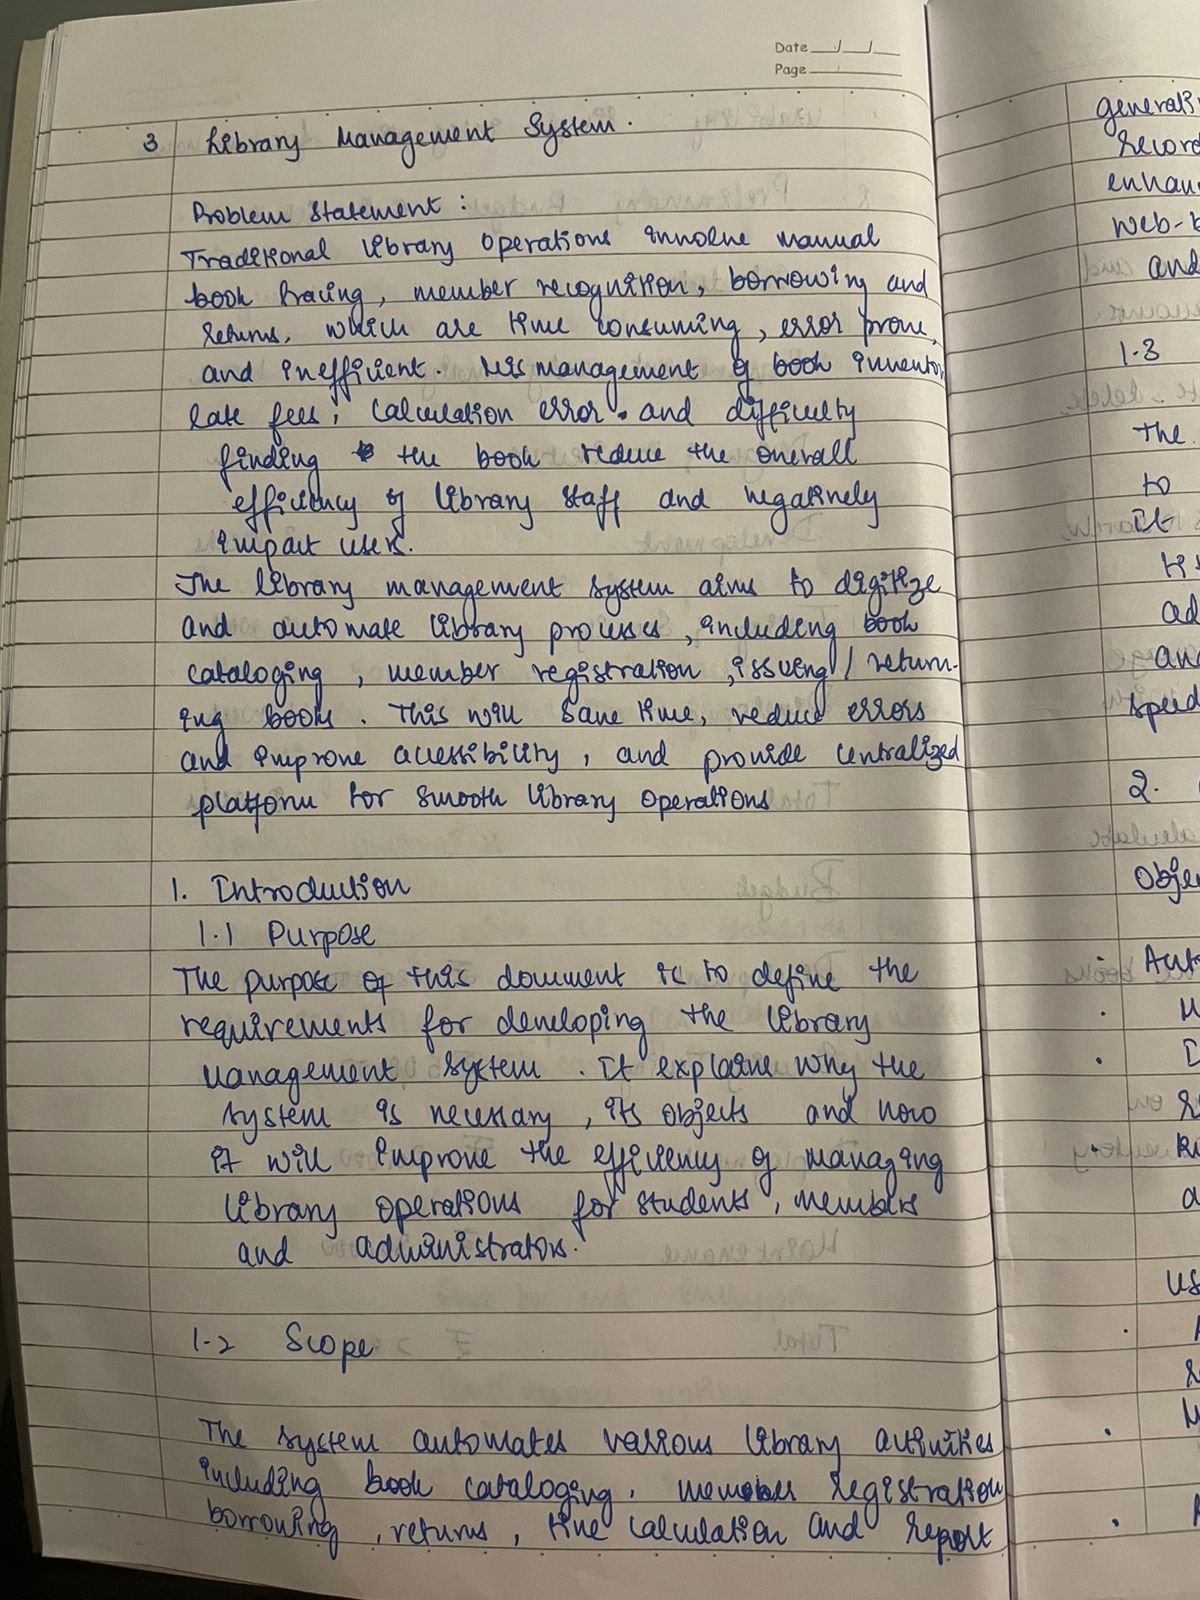 Date __/__/__
Page
3 Library Management System.
Problem Statement :
Traditional library operations involve manual
book tracing, member recognition, borrowing and
returns, which are time consuming, error prone,
and inefficient. Mismanagement of book inventor
late fees, calculation error. and difficulty
finding the book reduce the overall
efficiency of library staff and negatively
impact users.
The library management system aims to digitize
and automate library processes, including book
cataloging, member registration, issuing / return-
ing books. This will save time, reduce errors
and improve accessibility, and provide centralized
platform for smooth library operations
1. Introduction
1.1 Purpose
The purpose of this document is to define the
requirements for developing the library
management system. It explains why the
system is necessary, its objects and how
it will improve the efficiency of managing
library operations for students, members
and administrators.
1.2 Scope
The system automates various library activities
including book cataloging, member registration
borrowing, returns, fine calculation and report
generati
record
enhan
web-b
and
1.3
The
to
it
ad
and
speed
2.
Obje
Aut